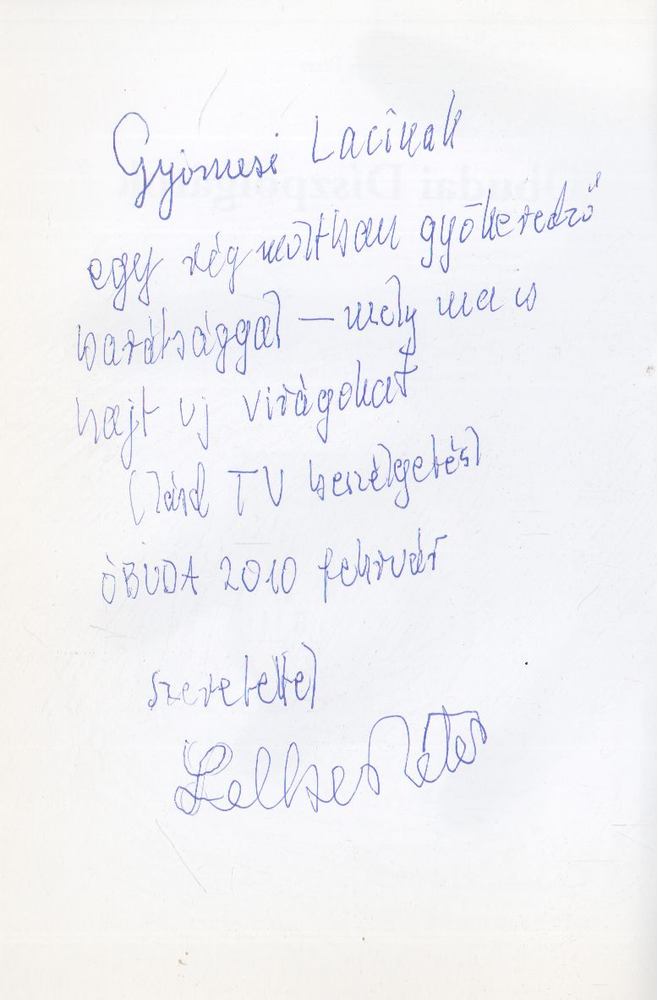 Gyömesi Lacinak
egy régmúltban gyökeredző
barátsággal — mely ma is
hajt uj virágokat
(lásd TV beszélgetés)
ÓBUDA 2010 február
szeretettel
Lelkes Péter